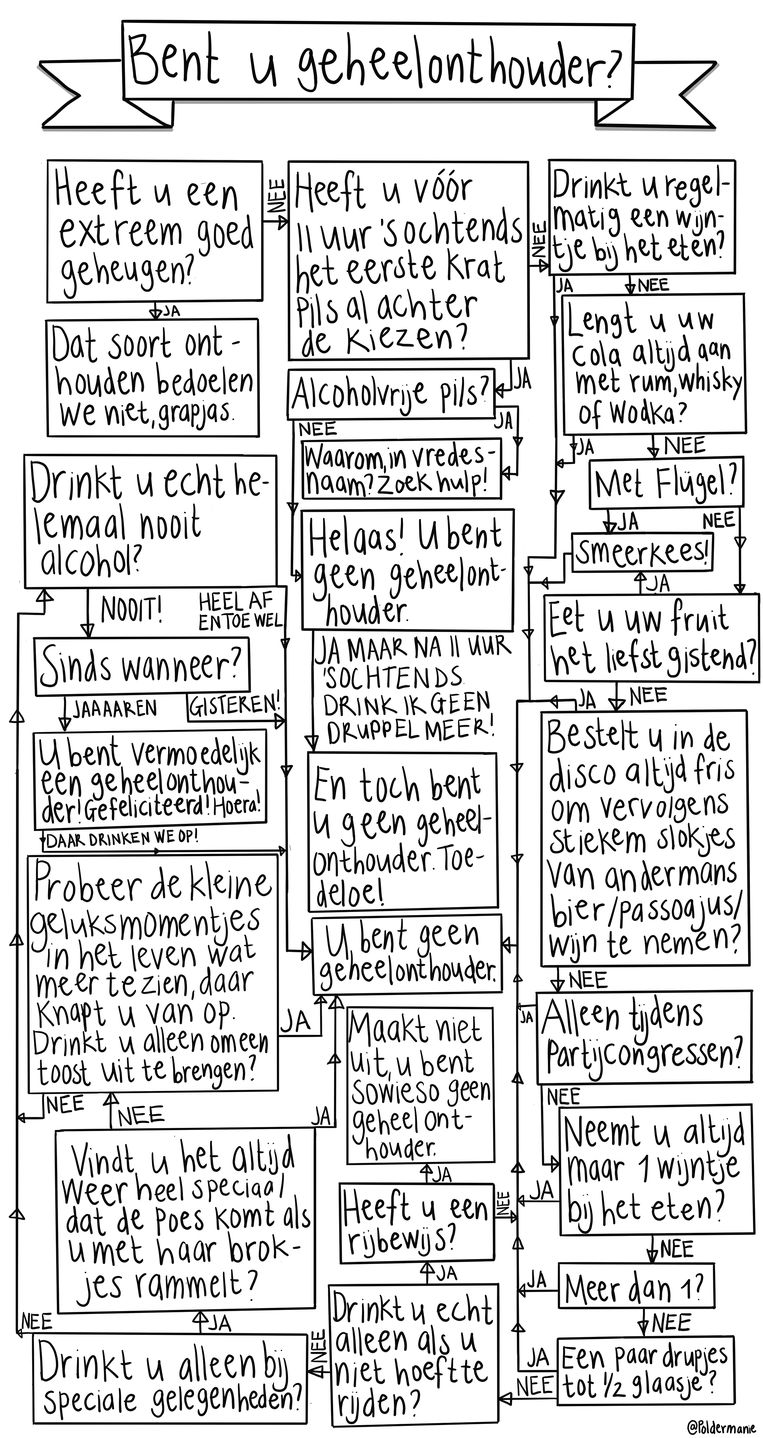 Bent u geheelonthouder?
Heeft u een
extreem goed
geheugen?
NEE
JA
Dat soort ont-
houden bedoelen
we niet, grapjas.
Heeft u vóór
11 uur 's ochtends
het eerste krat
pils al achter
de kiezen?
NEE
JA
Alcoholvrije pils?
NEE
JA
Waarom, in vredes-
naam? Zoek hulp!
Helaas! U bent
geen geheelont-
houder.
JA MAAR NA 11 UUR
'S OCHTENDS
DRINK IK GEEN
DRUPPEL MEER!
En toch bent
u geen geheel-
onthouder. Toe-
deloe!
U bent geen
geheelonthouder.
Drinkt u regel-
matig een wijn-
tje bij het eten?
JA
NEE
Lengt u uw
cola altijd aan
met rum, whisky
of wodka?
JA
NEE
Met Flügel?
JA
NEE
Smeerkees!
JA
Eet u uw fruit
het liefst gistend?
JA
NEE
Bestelt u in de
disco altijd fris
om vervolgens
stiekem slokjes
van andermans
bier/passoajus/
wijn te nemen?
NEE
JA
Alleen tijdens
partijcongressen?
NEE
Neemt u altijd
maar 1 wijntje
bij het eten?
JA
NEE
Meer dan 1?
JA
NEE
Een paar drupjes
tot 1/2 glaasje?
JA
NEE
Drinkt u echt
alleen als u
niet hoeft te
rijden?
JA
NEE
Heeft u een
rijbewijs?
NEE
JA
Maakt niet
uit, u bent
sowieso geen
geheelont-
houder.
Drinkt u alleen bij
speciale gelegenheden?
NEE
JA
Vindt u het altijd
weer heel speciaal
dat de poes komt als
u met haar brok-
jes rammelt?
NEE
JA
Probeer de kleine
geluksmomentjes
in het leven wat
meer te zien, daar
knapt u van op.
Drinkt u alleen om een
toost uit te brengen?
NEE
JA
Drinkt u echt he-
lemaal nooit
alcohol?
NOOIT!
HEEL AF
EN TOE WEL
Sinds wanneer?
JAAAAREN
GISTEREN!
U bent vermoedelijk
een geheelonthou-
der! Gefeliciteerd! Hoera!
DAAR DRINKEN WE OP!
@Poldermanie